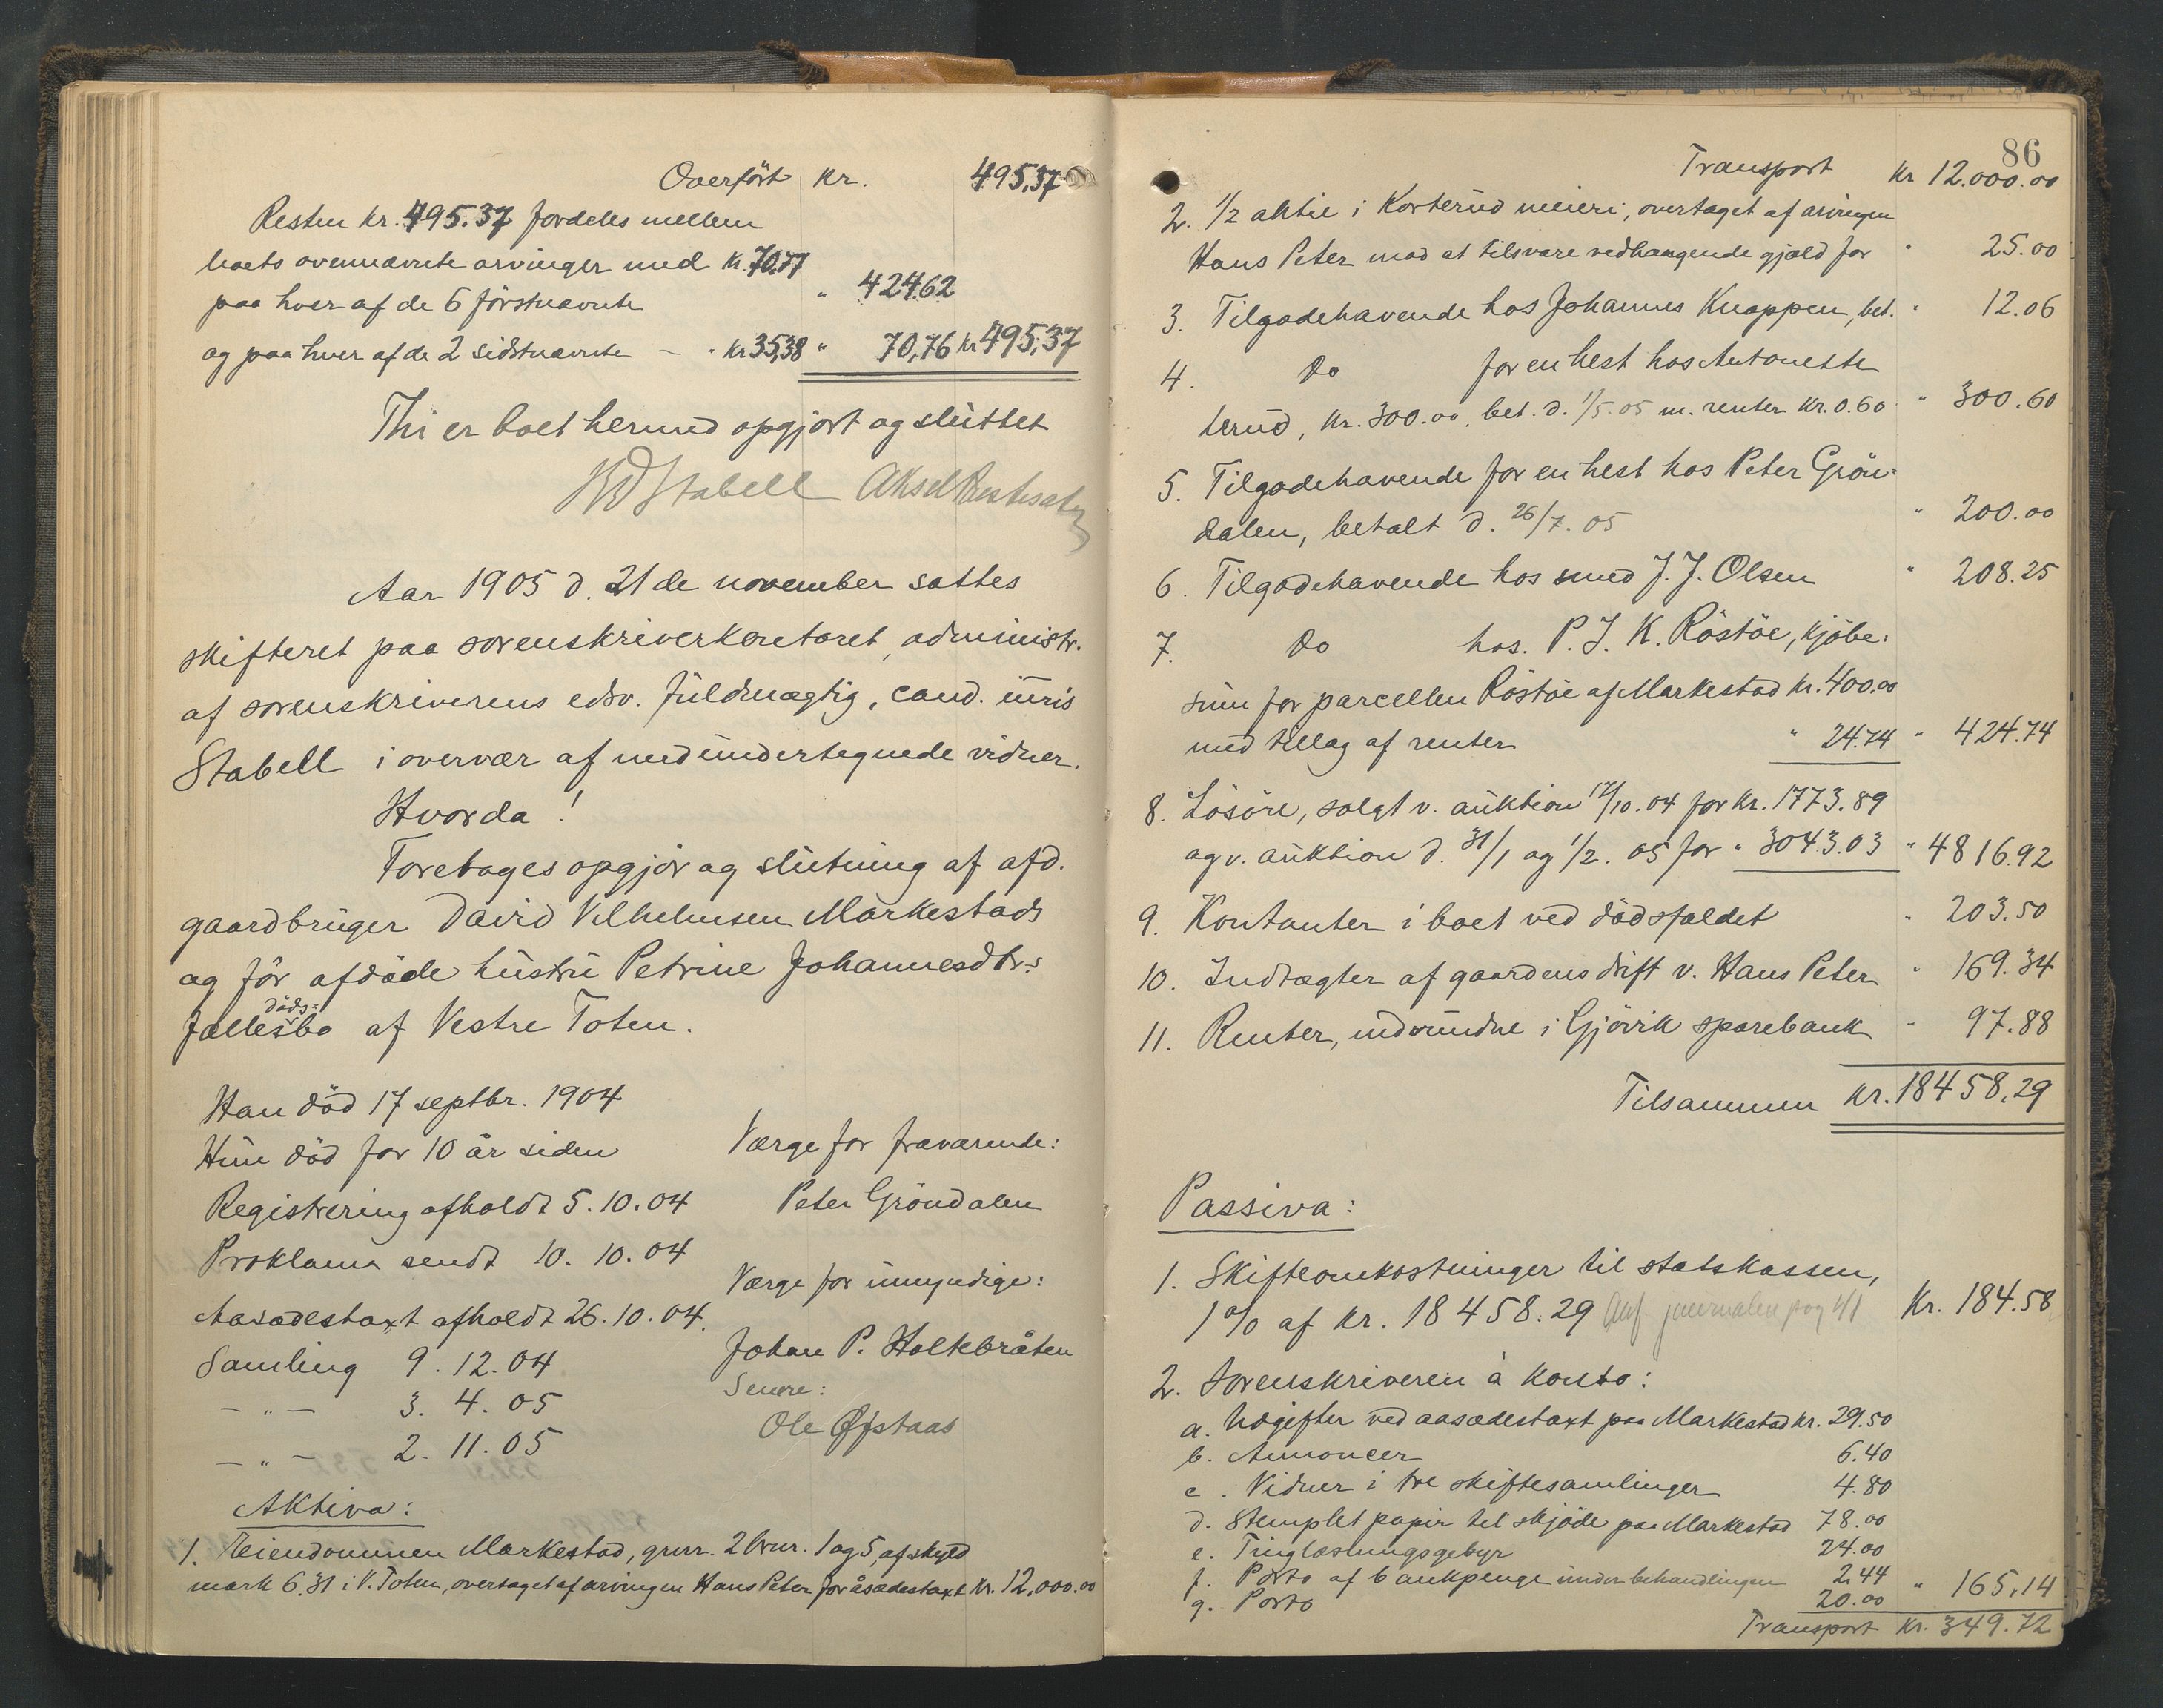 Overført kr. 495.37
Resten kr. 495.37 fordeles mellem
boets ovennævnte arvinger med kr. 70,77
paa hver af de 6 förstnævnte " 424.62
og paa hver af de 2 sidstnævnte - " kr 35,38 " 70,76 kr 495,37
Thi er boet hermed opgjort og sluttet
Stabell Aksel
Aar 1905 d. 21de november sattes
skifteret paa sorenskriverkontoret, administr.
af sorenskriverens edsv. fuldmægtig, cand. iuris
Stabell i overvær af medundertegnede vidner.
Hvorda!
Foretages opgjör og slutning af afd.
gaardbruger David Vilhelmsen Markestads
og för afdöde hustru Petrine Johannesdtr.s
döds=
fællesbo af Vestre Toten.
Han död 17 septbr. 1904
Hun död for 10 år siden
Registrering afholdt 5.10.04
Proklama sendt 10.10.04
Aasædestaxt afholdt 26.10.04.
Samling 9.12.04
- " - 3.4.05
- " - 2.11.05
Værge for fraværende:
Peter Gröndalen
Værge for umyndige:
Johan P. Holtebråten
Senere:
Ole Øfstaas
Aktiva:
1. Eiendommen Markestad, gnr. 2 brnr. 1 og 5, af skyld
mark 6.31 i V. Toten, overtaget af arvingen Hans Peter for åsædestaxt kr. 12,000.00
86
Transport kr 12.000.00
2. 1/2 aktie i Korterud meieri, overtaget af arvingen
Hans Peter mod at tilsvare vedhængende gjæld for " 25.00
3. Tilgodehavende hos Johannes Knappen, bet. " 12.06
4. Do for en hest hos Antonette
terud, kr. 300.00, bet. d. 1/5.05 m. renter kr. 0.60 " 300.60
5. Tilgodehavende for en hest hos Peter Grön=
dalen, betalt d. 26/7.05 " 200.00
6. Tilgodehavende hos smed J. J. Olsen " 208.25
7. Do hos P. J. K. Röstöe, kjöbe=
sum for parcellen Röstöe af Markestad kr. 400.00
med tillæg af renter " 24.74 " 424.74
8. Lösöre, solgt v. auktion 17/10.04 for kr. 1773.89
og v. auktion d. 31/1 og 1/2.05 for " 3043.03 " 4816.92
9. Kontanter i boet ved dödsfaldet " 203.50
10. Indtægter af gaardens drift v. Hans Peter " 169.34
11. Renter, indvundne i Gjövik sparebank " 97.88
Tilsammen kr. 18458.29
Passiva:
1. Skifteomkostninger til statskassen,
1% af kr. 18458.29 Anf. journalen pag 41 Kr. 184.58
2. Sorenskriveren à konto:
a. Udgifter ved aasædestaxt paa Markestad kr. 29.50
b. Annoncer 6.40
c. Vidner i tre skiftesamlinger 4.80
d. Stemplet papir til skjöde paa Markestad 78.00
e. Tinglæsningsgebyr 24.00
f. Porto af bankpenge under behandlingen 2.44
g. Porto 20.00 " 165,14
Transport kr. 349.72